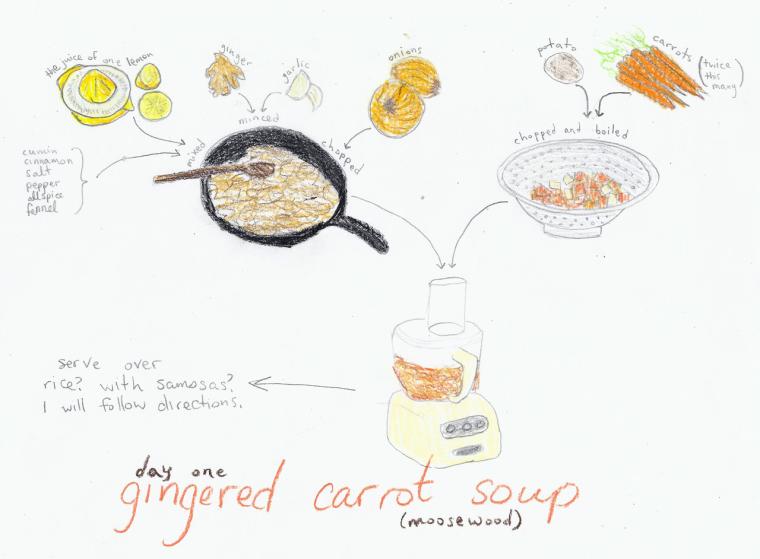 the juice of one lemon
ginger
garlic
onions
potato
carrots
(twice
this
many)
minced
mixed
chopped
chopped and boiled
cumin
cinnamon
salt
pepper
allspice
fennel
serve over
rice? with samosas?
I will follow directions.
day one
gingered carrot soup
(moosewood)